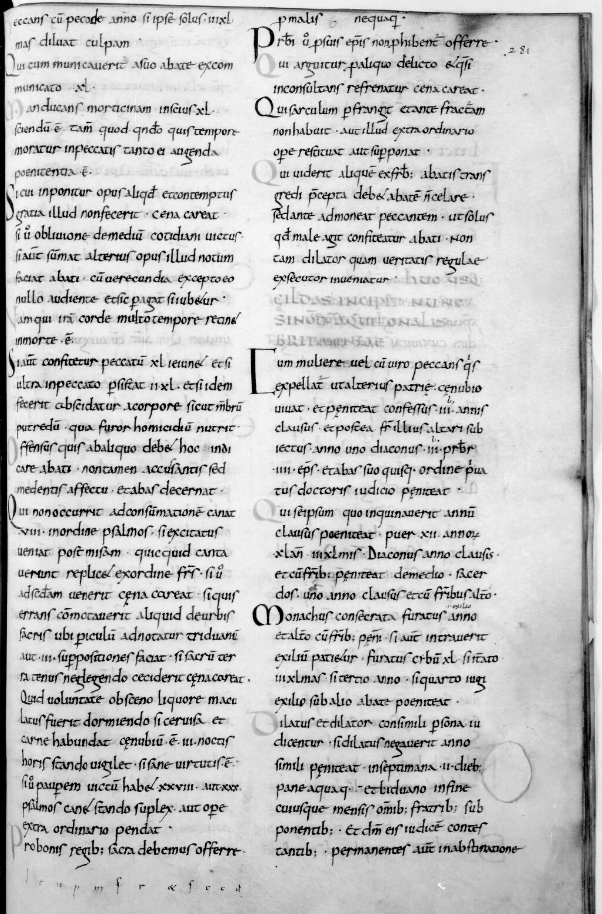 eccans cū pecode anno si ipse solus iii xl
mas diluat culpam
Qui cum municauerit asuo abate excom
municato xl.
Manducans morticinam inscius xl.
sciendū ē tam quod qndo quis tempore
moratur inpeccatis tanto ei augenda
poenitentia ē.
Sicui inponitur opus aliqd etcontemptus
gratia illud nonfecerit · cena careat ·
si ū obliuione demediū cotidiani uictus ·
si aut sumat alterius opus illud notum
faciat abati · cū uerecundia excepto eo
nullo audiente et sic pagat si iubetur ·
Nam qui irā corde multo tempore retinet
inmorte · ē ·
Si aut confitetur peccatū xl ieiunet et si
ultra inpeccato psistat ii xl · et si idem
fecerit abscidatur acorpore sicut mbrū
putredū · quia furor homicidiū nutrit ·
Offensus quis abaliquo debet hoc indi
care abati · non tamen accusantis sed
medentis affectu · et abas decernat ·
Qui non occurrit ad consumationē canat
· viii · inordine psalmos · si excitatus
ueniat post misam · quicquid canta
uerunt replicet exordine frs · si ū
ad secdam uenerit cęna careat · si quis
errans cōmotauerit aliquid deurbis
sacris ubi periculū adnotatur triduanū
aut · iii · suppositiones faciat · si sacrū ter
ra tenus neglegendo ceciderit cęna careat ·
Quid uoluntate obsceno liquore macu
latus fuerit dormiendo si ceruisa et
carne habundat cęnubiū · ē · iii · noctis
horis stando uigilet · si sane uirtutis · ē ·
si ū paupem uictū habet xxviii · aut xxx
psalmos canet stando suplex · aut ope
extra ordinario pendat ·
Probonis regib; sacra debemus offerre ·
pmalis nequaq ·
Prbī ū psuis epis non phibent offerre ·
281
Qui arguitur paliquo delicto et qsi
inconsultans refrenatur cena careat ·
Qui sarculum pfrangit et ante fractam
non habuit · aut illud extra ordinario
ope restituat aut supponat ·
Qui uiderit aliquē exfrib; abatis trans
gredi pcepta debet abatē n celare ·
sed ante admoneat peccantem · ut solus
qd male agit confiteatur abati · Non
tam dilator quam ueritatis regulae
exsecutor inueniatur ·
GILDAS INCIPIT NUNC
SINOD AQUILONALIS
BRITTANIAE
Cum muliere uel cū uiro peccans qis
expellat ut alterius patrię cęnubio
uiuat · et pęniteat confessus · iii · annis
clausus · et postea fr illius altari sub
iectus · anno uno diaconus · iii · prbr
iiii · eps · et abas suo quisq; ordine priua
tus doctoris iudicio pęniteat ·
Qui seipsum quo inquinauerit annū
clausus poeniteat · puer xii · annor
xlam · iii xlmis · Diaconus anno clausis
et cū frib; pęniteat demedio · sacer
dos · uno anno clausus et cū fribus alto ·
Monachus consecrata furatus anno
et alto cū frib; pęni · si aut intrauerit
exiliū patietur · furatus cibū xl · si itato
iii xlmas si tertio anno · si quarto iugi
exilio sub alio abate poeniteat ·
Dilatus et dilator consimili psona iu
dicentur · si dilatus negauerit anno
simili pęniteat · inseptimana · ii · dieb;
pane aquaq; · et biduano infine
cuiusque mensis omib; fratrib; sub
ponentib; · Et dm eis iudicē contes
tantib; · permanentes aut inabstinatione